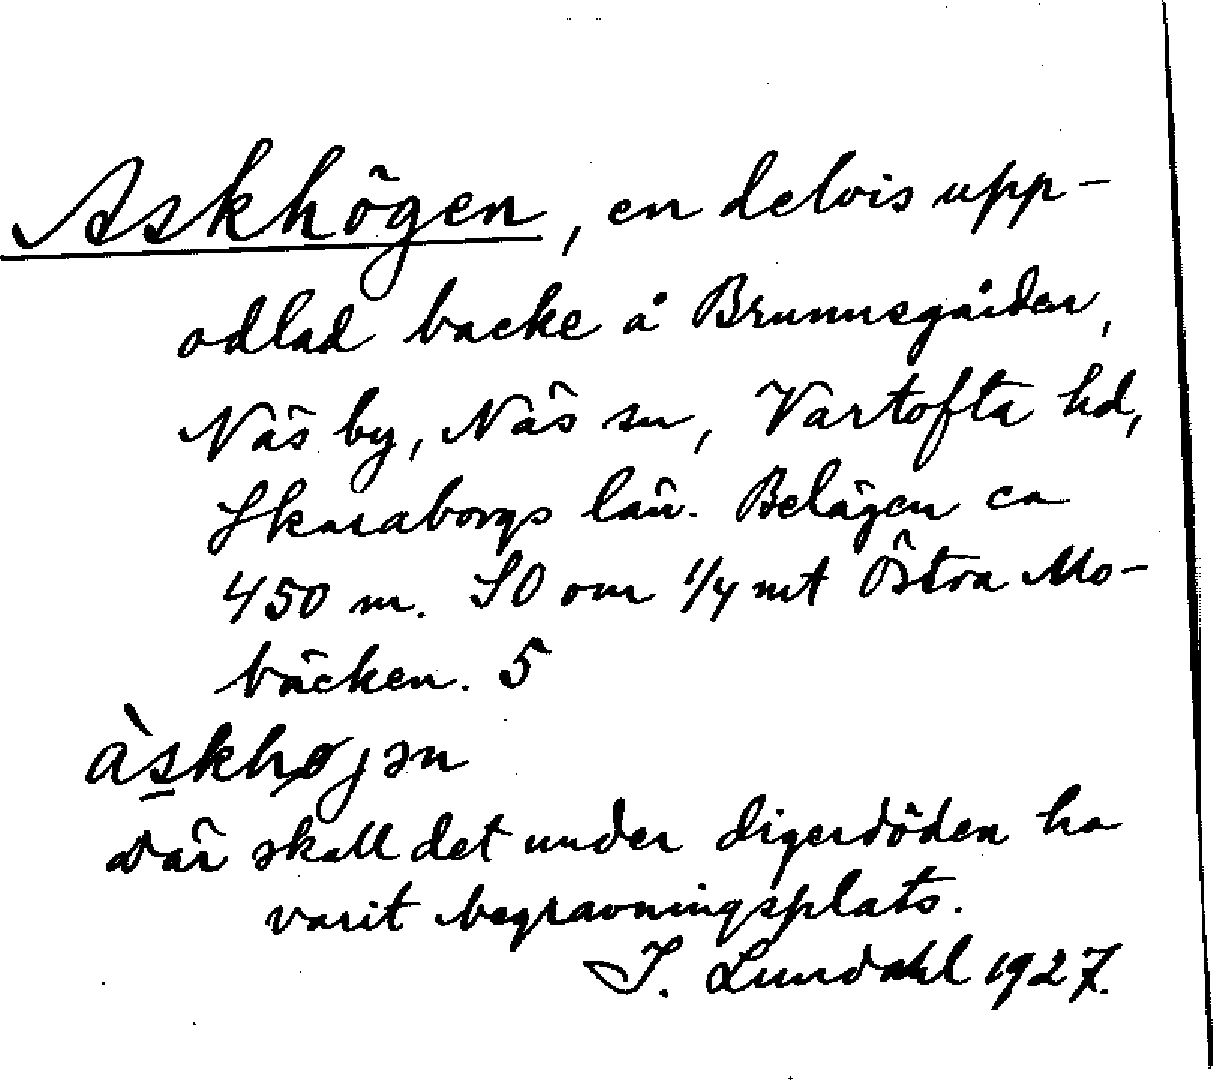 Askhögen, en delvis upp-
odlad backe å Brunnsgården,
Näs by, Näs sn, Vartofta hd,
Skaraborgs län. Belägen ca
450 m. SO om 1/4 mt Östra Mo-
bäcken. 5
àskhøjən
där skall det under digerdöden ha
varit begravningsplats.
I. Lundahl 1927.